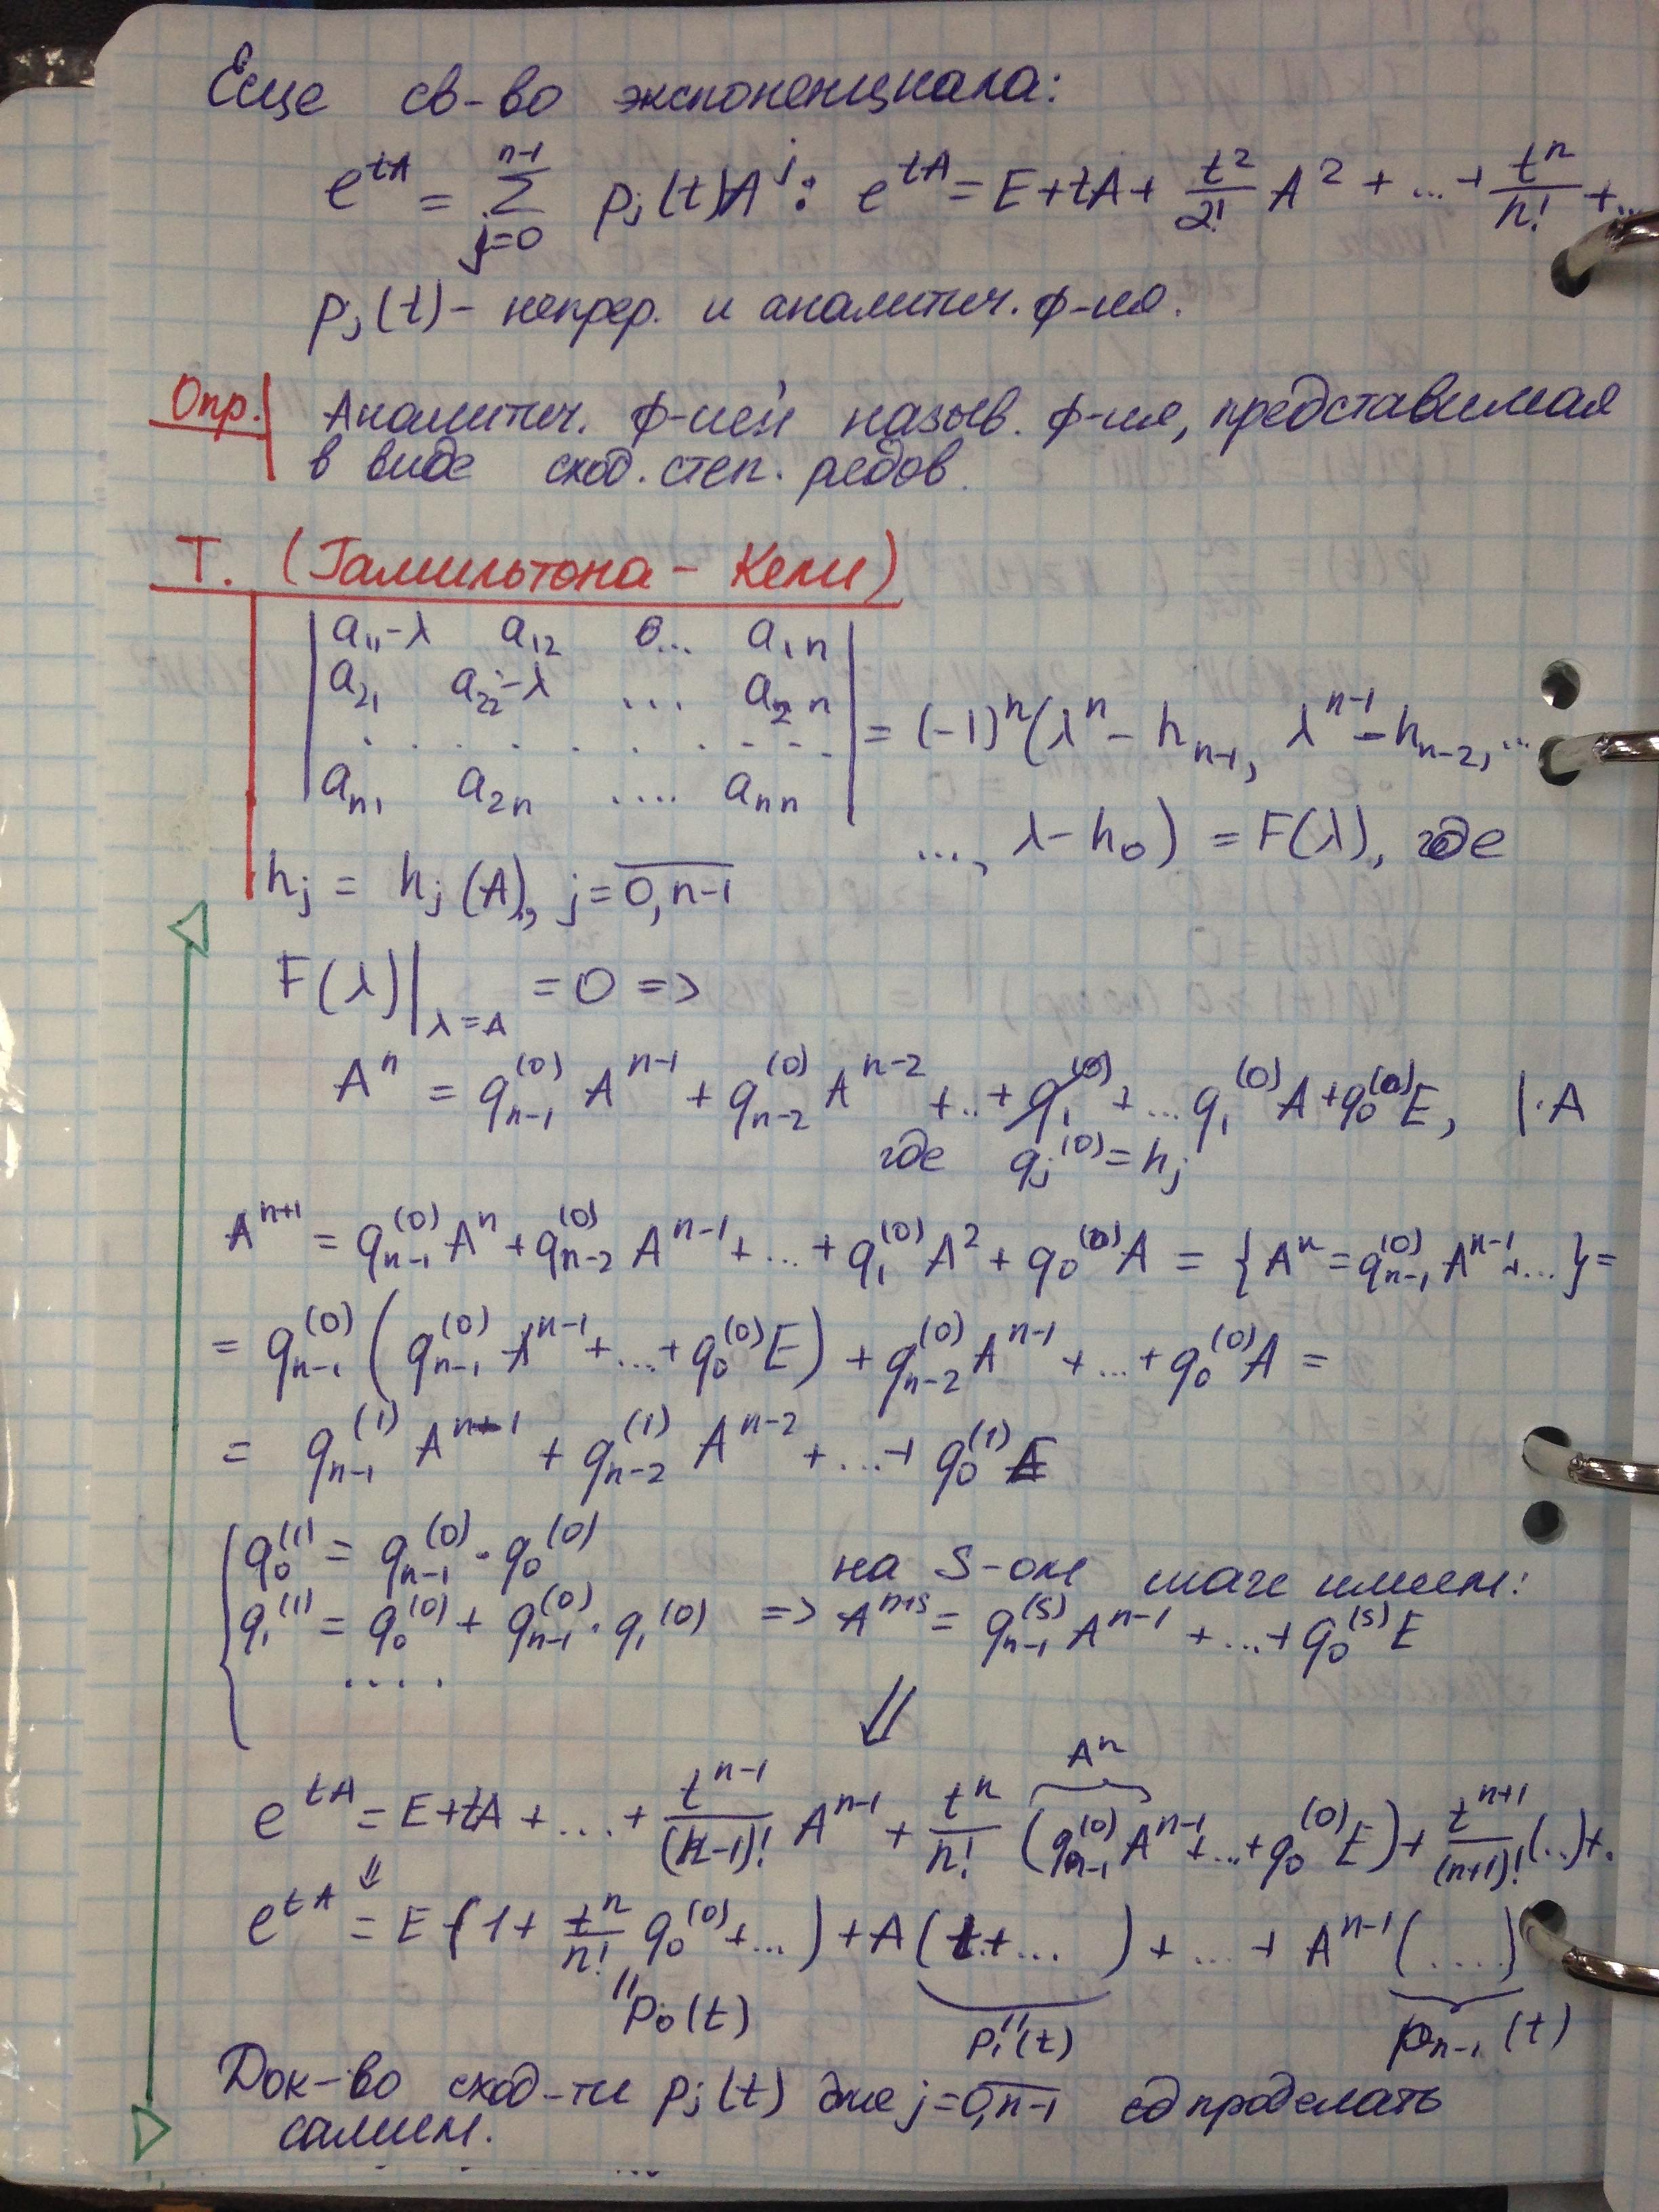 Еще св-во экспоненциала:
e^{tA} = \sum_{j=0}^{n-1} p_j(t)A^j : e^{tA} = E + tA + \frac{t^2}{2!} A^2 + ... + \frac{t^n}{n!} + ...
p_j(t) - непрер. и аналитич. ф-ия.
Опр. Аналитич. ф-ией назыв. ф-ия, представимая
в виде сход. степ. рядов.
Т. (Гамильтона - Кели)
| a_{11}-λ a_{12} ... a_{1n} |
| a_{21} a_{22}-λ ... a_{2n} |
| . . . . . . . . . | = (-1)^n (λ^n - h_{n-1}, λ^{n-1} - h_{n-2}, ...
| a_{n1} a_{2n} .... a_{nn} |
..., λ - h_0) = F(λ), где
h_j = h_j(A), j = \overline{0,n-1}
F(λ)|_{λ=A} = 0 =>
A^n = q_{n-1}^{(0)} A^{n-1} + q_{n-2}^{(0)} A^{n-2} + .. + ... q_1^{(0)} A + q_0^{(0)} E, | · A
где q_j^{(0)} = h_j
A^{n+1} = q_{n-1}^{(0)} A^n + q_{n-2}^{(0)} A^{n-1} + ... + q_1^{(0)} A^2 + q_0^{(0)} A = {A^n = q_{n-1}^{(0)} A^{n-1} + ...} =
= q_{n-1}^{(0)} ( q_{n-1}^{(0)} A^{n-1} + ... + q_0^{(0)} E ) + q_{n-2}^{(0)} A^{n-1} + ... + q_0^{(0)} A =
= q_{n-1}^{(1)} A^{n-1} + q_{n-2}^{(1)} A^{n-2} + ... + q_0^{(1)} E
{ q_0^{(1)} = q_{n-1}^{(0)} · q_0^{(0)}
на S-ом шаге имеем:
q_1^{(1)} = q_0^{(0)} + q_{n-1}^{(0)} · q_1^{(0)} => A^{n+s} = q_{n-1}^{(s)} A^{n-1} + ... + q_0^{(s)} E
.....
⇓
A^n
e^{tA} = E + tA + ... + \frac{t^{n-1}}{(n-1)!} A^{n-1} + \frac{t^n}{n!} (q_{n-1}^{(0)} A^{n-1} + ... + q_0^{(0)} E) + \frac{t^{n+1}}{(n+1)!} (..) + .
⇓
e^{tA} = E (1 + \frac{t^n}{n!} q_0^{(0)} + ...) + A (t + ... ) + ... + A^{n-1} (....)
" p_0(t) p_1"(t) p_{n-1}(t)
Док-во сход-ти p_j(t) для j = \overline{0,n-1} проделать
самим.